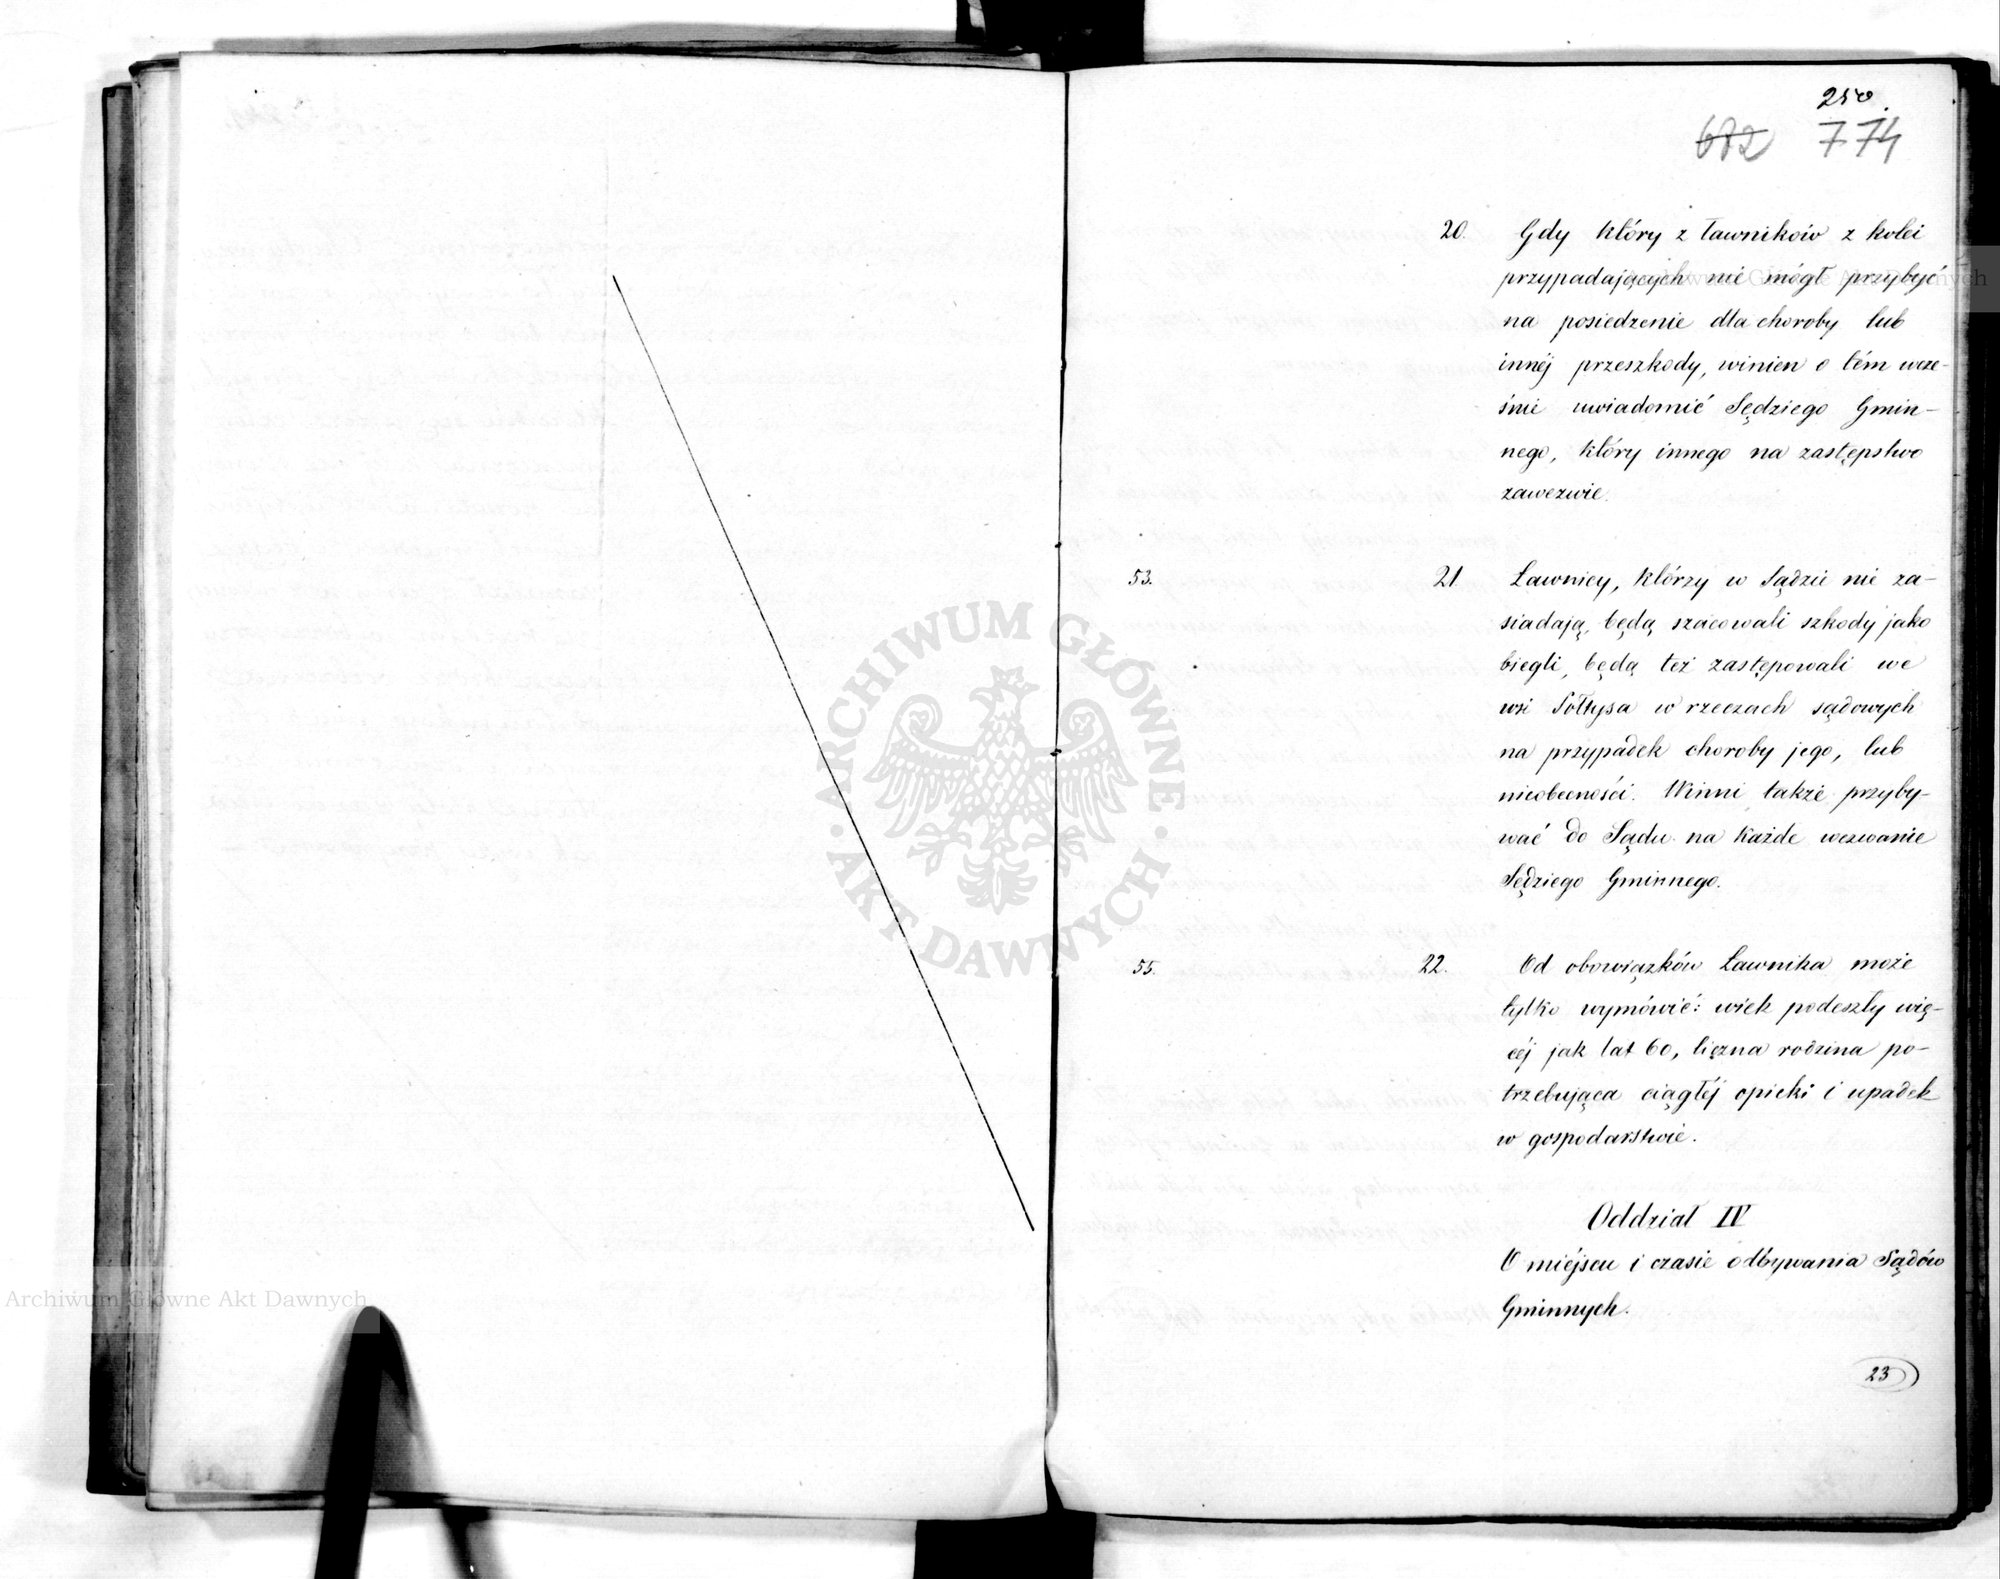 250.
682 774
20. Gdy który z Ławników z kolei
przypadających nie mógł przybyć
na posiedzenie dla choroby lub
innéj przeszkody, winien o tém wcze-
śnie uwiadomić Sędziego Gmin-
nego, który innego na zastępstwo
zawezwie.
53. 21 Ławnicy, którzy w Sądzie nie za-
siadają, będą szacowali szkody jako
biegli, będą też zastępowali we
wsi Sołtysa w rzeczach sądowych
na przypadek choroby jego, lub
nieobecności. Winni także przyby-
wać do Sądu na każde wezwanie
Sędziego Gminnego.
55. 22. Od obowiązków Ławnika może
tylko wymówić: wiek podeszły wię-
céj jak lat 60, liczna rodzina po-
trzebująca ciągłéj opieki i upadek
w gospodarstwie.
Oddział IV
O miéjscu i czasie odbywania Sądów
Gminnych.
23
ARCHIWUM GŁÓWNE
AKT DAWNYCH
Archiwum Główne Akt Dawnych
Archiwum Główne Akt Dawnych